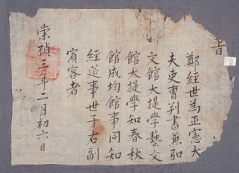 旨
鄭經世為正憲大
夫吏曹判書兼弘
文館大提學藝文
館大提學知春秋
館成均館事同知
經筵事世子右副
賓客者
崇禎三年二月初六日